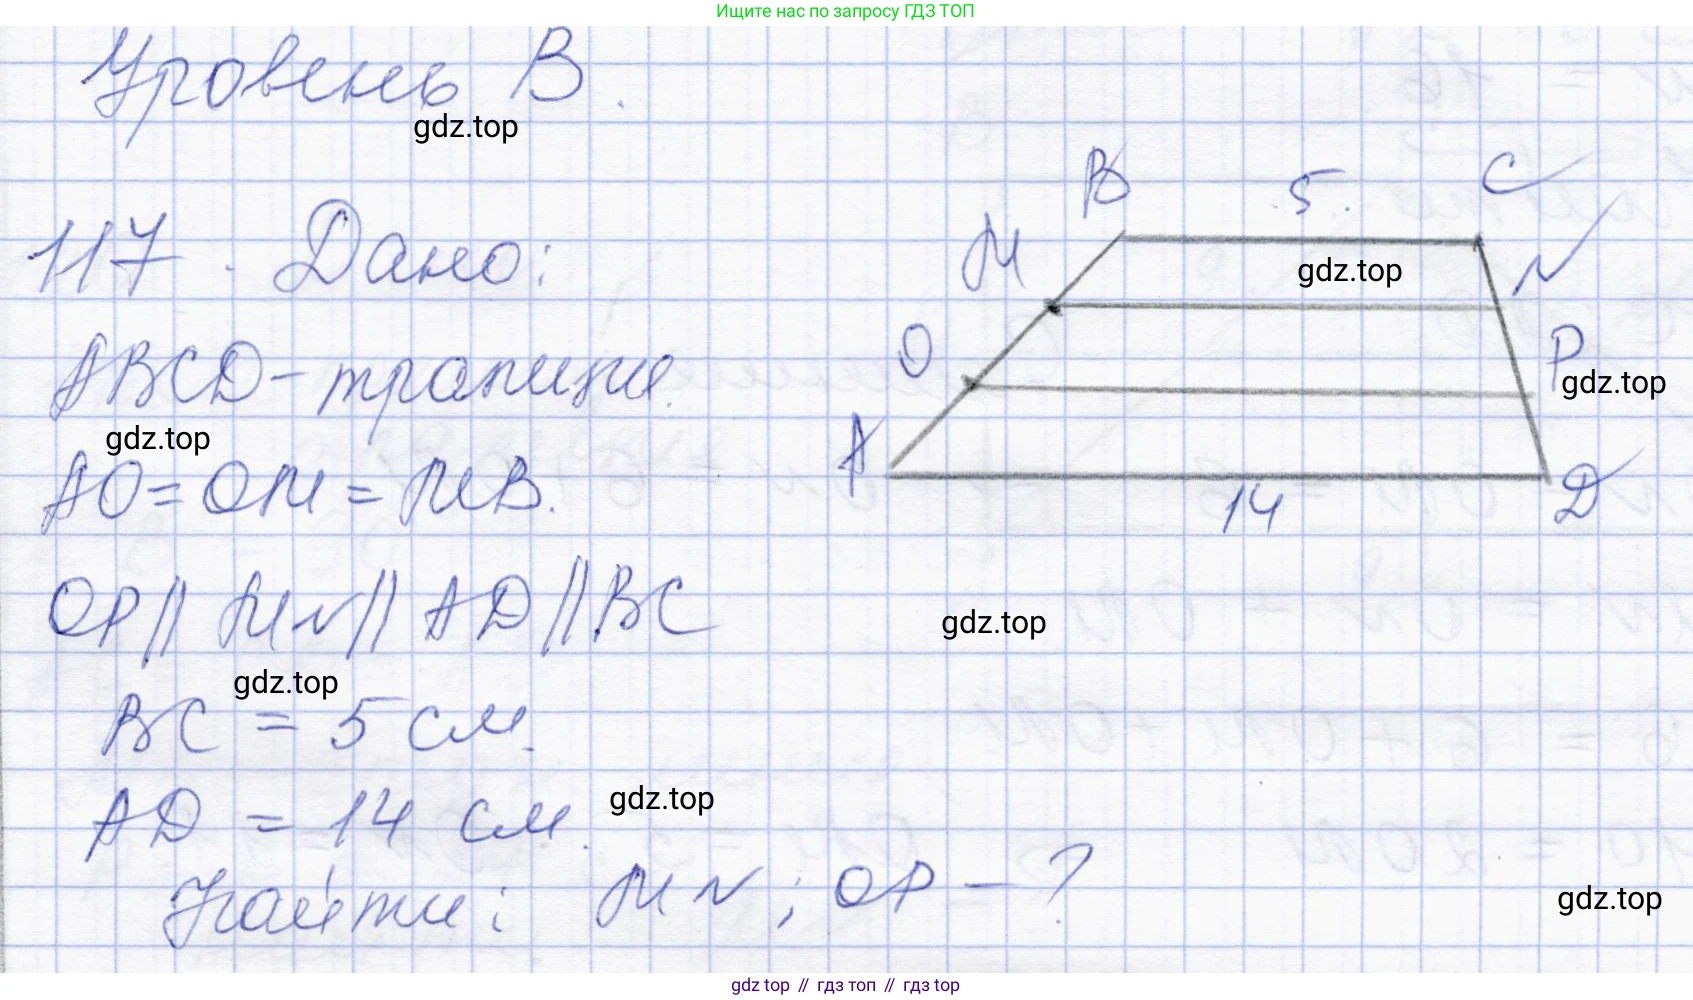 Ищите нас по запросу ГДЗ ТОП
Уровень В.
gdz.top
117. Дано:
B 5. C
M N
gdz.top
O P
ABCD - трапеция.
gdz.top
gdz.top
A D
14
AO = OM = MB.
OP || MN || AD || BC
gdz.top
gdz.top
BC = 5 см.
AD = 14 см.
gdz.top
Найти: MN; OP - ?
gdz.top
gdz top // гдз топ // гдз top